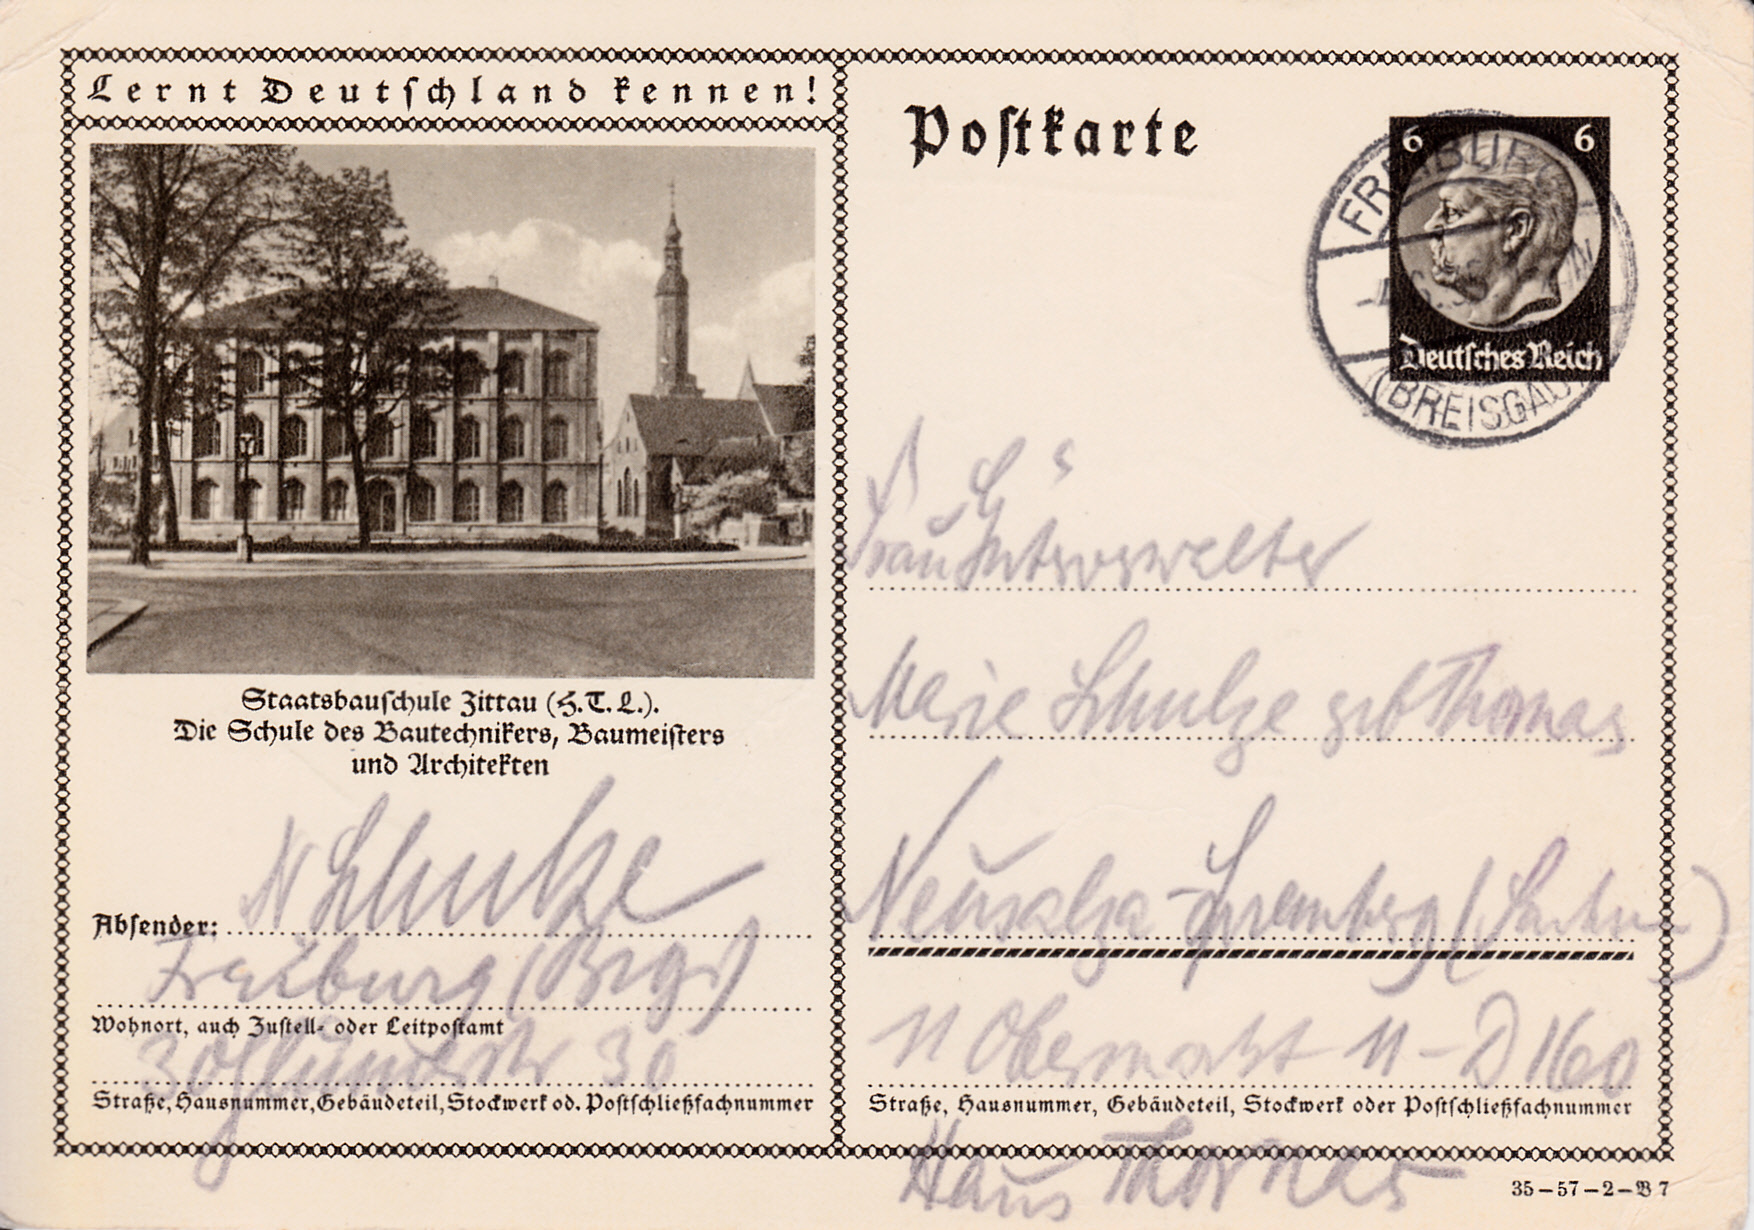 Lernt Deutſchland kennen!
Staatsbauſchule Zittau (H.T.L.).
Die Schule des Bautechnikers, Baumeiſters
und Architekten
N Schulze
Abſender:
Freiburg (Brsg.)
Wohnort, auch Zuſtell- oder Leitpoſtamt
30
Straße, Hausnummer, Gebäudeteil, Stockwerk od. Poſtſchließfachnummer
Poſtkarte
6 6
Deutſches Reich
FREIBURG
(BREISGAU)
Frau Gutsverwalter
Marie Schulze geb Thomas
Neusalza-Spremberg (Sachsen)
11 Obermarkt 11 - D 160
Straße, Hausnummer, Gebäudeteil, Stockwerk oder Poſtſchließfachnummer
Haus Thomas
35-57-2-B7